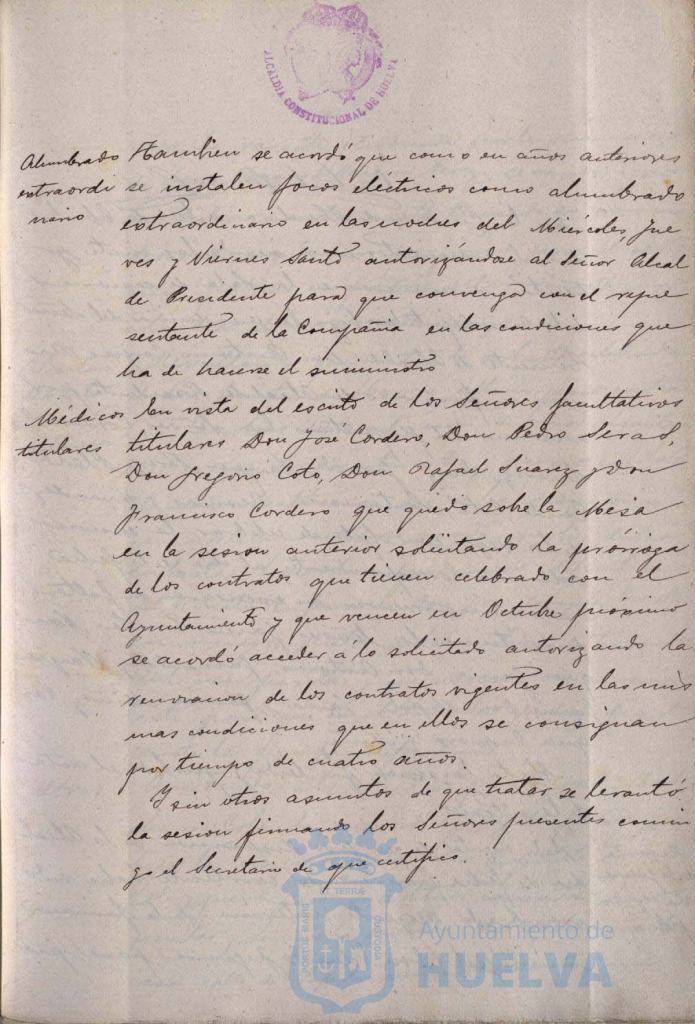 ALCALDIA CONSTITUCIONAL DE HUELVA
Alumbrado
extraordi
nario
Tambien se acordó que como en años anteriores
se instalen focos eléctricos como alumbrado
extraordinario en las noches del Miércoles, Jue
ves y Viernes Santo autorizándose al Señor Alcal
de Presidente para que convenga con el repre
sentante de la Compañia en las condiciones que
ha de hacerse el suministro
Médicos
titulares
En vista del escrito de los Señores facultativos
titulares Don José Cordero, Don Pedro Seras,
Don Gregorio Coto, Don Rafael Suarez y Don
Francisco Cordero que quedó sobre la Mesa
en la sesion anterior solicitando la prórroga
de los contratos que tienen celebrado con el
Ayuntamiento y que vencen en Octubre próximo
se acordó acceder á lo solicitado autorizando la
renovacion de los contratos vigentes en las mis
mas condiciones que en ellos se consignan
por tiempo de cuatro años.
Y sin otros asuntos de que tratar se levantó
la sesion firmando los Señores presentes conmi
go el Secretario de que certifico.
PORTUS MARIS ET TERRÆ CUSTODIA
Ayuntamiento de
HUELVA